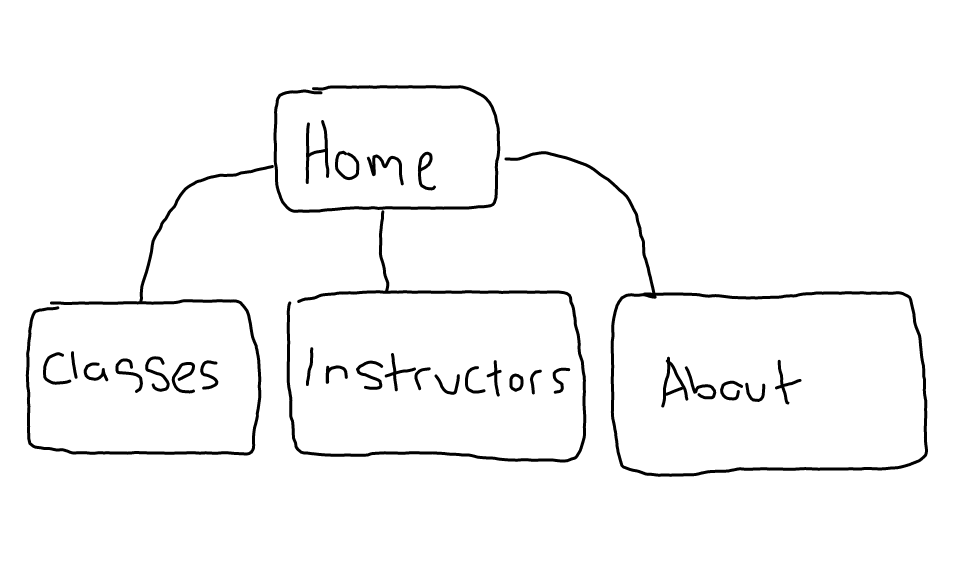 Home
Classes
Instructors
About